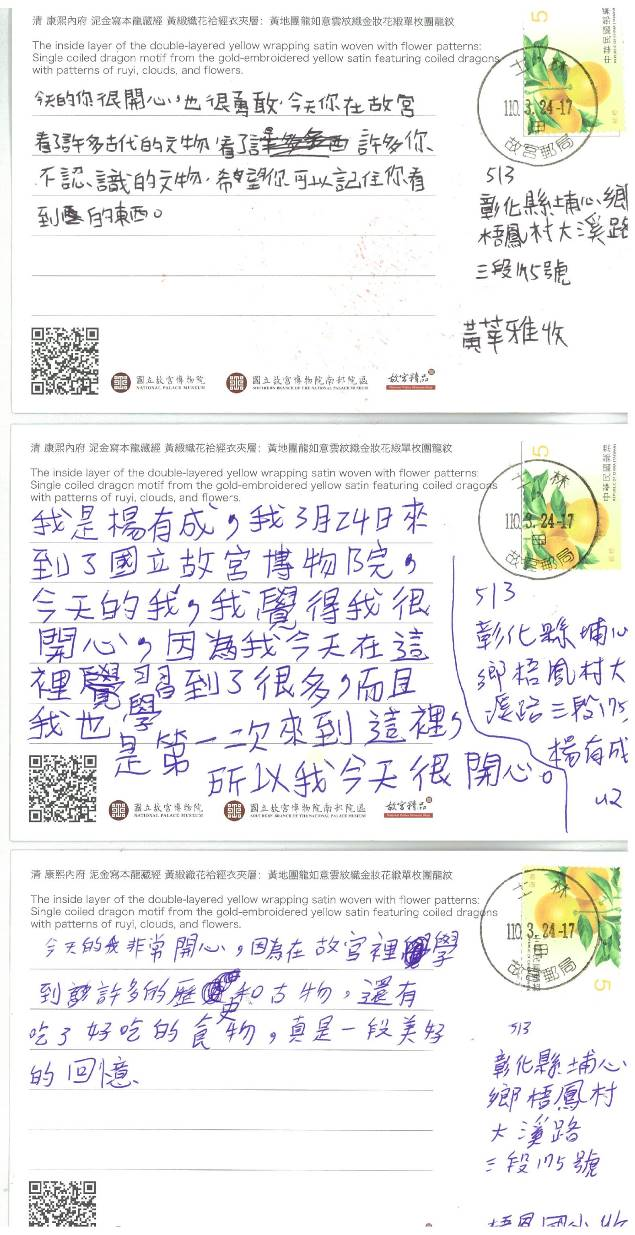 清 康熙內府 泥金寫本龍藏經 黃緞織花袷經衣夾層：黃地團龍如意雲紋織金妝花緞單枚團龍紋
The inside layer of the double-layered yellow wrapping satin woven with flower patterns:
Single coiled dragon motif from the gold-embroidered yellow satin featuring coiled dragons
with patterns of ruyi, clouds, and flowers.
今天的你很開心，也很勇敢，今天你在故宮
看了許多古代的文物，看了許多你
不認識的文物，希望你可以記住你看
到的東西。
5
中華民國郵票
士林
110.3.24-17
甲
故宮郵局
513
彰化縣埔心鄉
梧鳳村大溪路
三段175號
黃莘雅收
國立故宮博物院
NATIONAL PALACE MUSEUM
國立故宮博物院南部院區
SOUTHERN BRANCH OF THE NATIONAL PALACE MUSEUM
故宮精品
National Palace Museum Shop
清 康熙內府 泥金寫本龍藏經 黃緞織花袷經衣夾層：黃地團龍如意雲紋織金妝花緞單枚團龍紋
The inside layer of the double-layered yellow wrapping satin woven with flower patterns:
Single coiled dragon motif from the gold-embroidered yellow satin featuring coiled dragons
with patterns of ruyi, clouds, and flowers.
我是楊有成，我3月24日來
到了國立故宮博物院，
今天的我，我覺得我很
開心，因為我今天在這
裡學習到了很多，而且
我也是第一次來到這裡，
所以我今天很開心。
5
中華民國郵票
士林
110.3.24-17
甲
故宮郵局
513
彰化縣埔心
鄉梧鳳村大
溪路三段175
楊有成
收
國立故宮博物院
NATIONAL PALACE MUSEUM
國立故宮博物院南部院區
SOUTHERN BRANCH OF THE NATIONAL PALACE MUSEUM
故宮精品
National Palace Museum Shop
清 康熙內府 泥金寫本龍藏經 黃緞織花袷經衣夾層：黃地團龍如意雲紋織金妝花緞單枚團龍紋
The inside layer of the double-layered yellow wrapping satin woven with flower patterns:
Single coiled dragon motif from the gold-embroidered yellow satin featuring coiled dragons
with patterns of ruyi, clouds, and flowers.
今天的我非常開心，因為在故宮裡學
到許多的歷史和古物，還有
吃了好吃的食物，真是一段美好
的回憶
士林
110.3.24-17
甲
故宮郵局
5
513
彰化縣埔心
鄉梧鳳村
大溪路
三段175號
梧鳳國小收